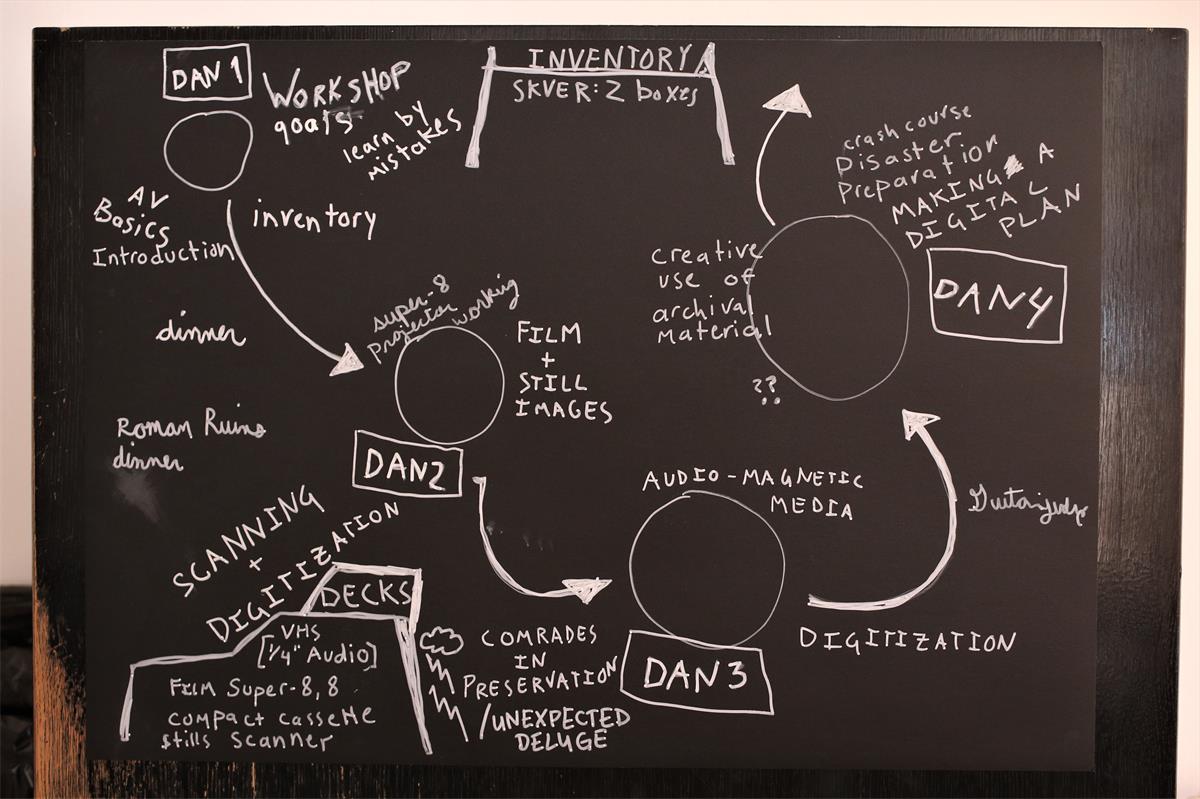 DAN 1
WORKSHOP
goals
learn by
mistakes
AV
Basics
Introduction
inventory
dinner
Roman Ruins
dinner
INVENTORY
SKVER: 2 boxes
super-8
projector working
FILM
+
STILL
IMAGES
DAN2
SCANNING
+
DIGITIZATION
DECKS
VHS
[1/4" Audio]
FILM Super-8, 8
compact cassette
stills scanner
COMRADES
IN
PRESERVATION
/UNEXPECTED
DELUGE
AUDIO-MAGNETIC
MEDIA
DAN 3
DIGITIZATION
crash course
Disaster
Preparation
MAKING A
DIGITAL
PLAN
DAN4
creative
use of
archival
material
??